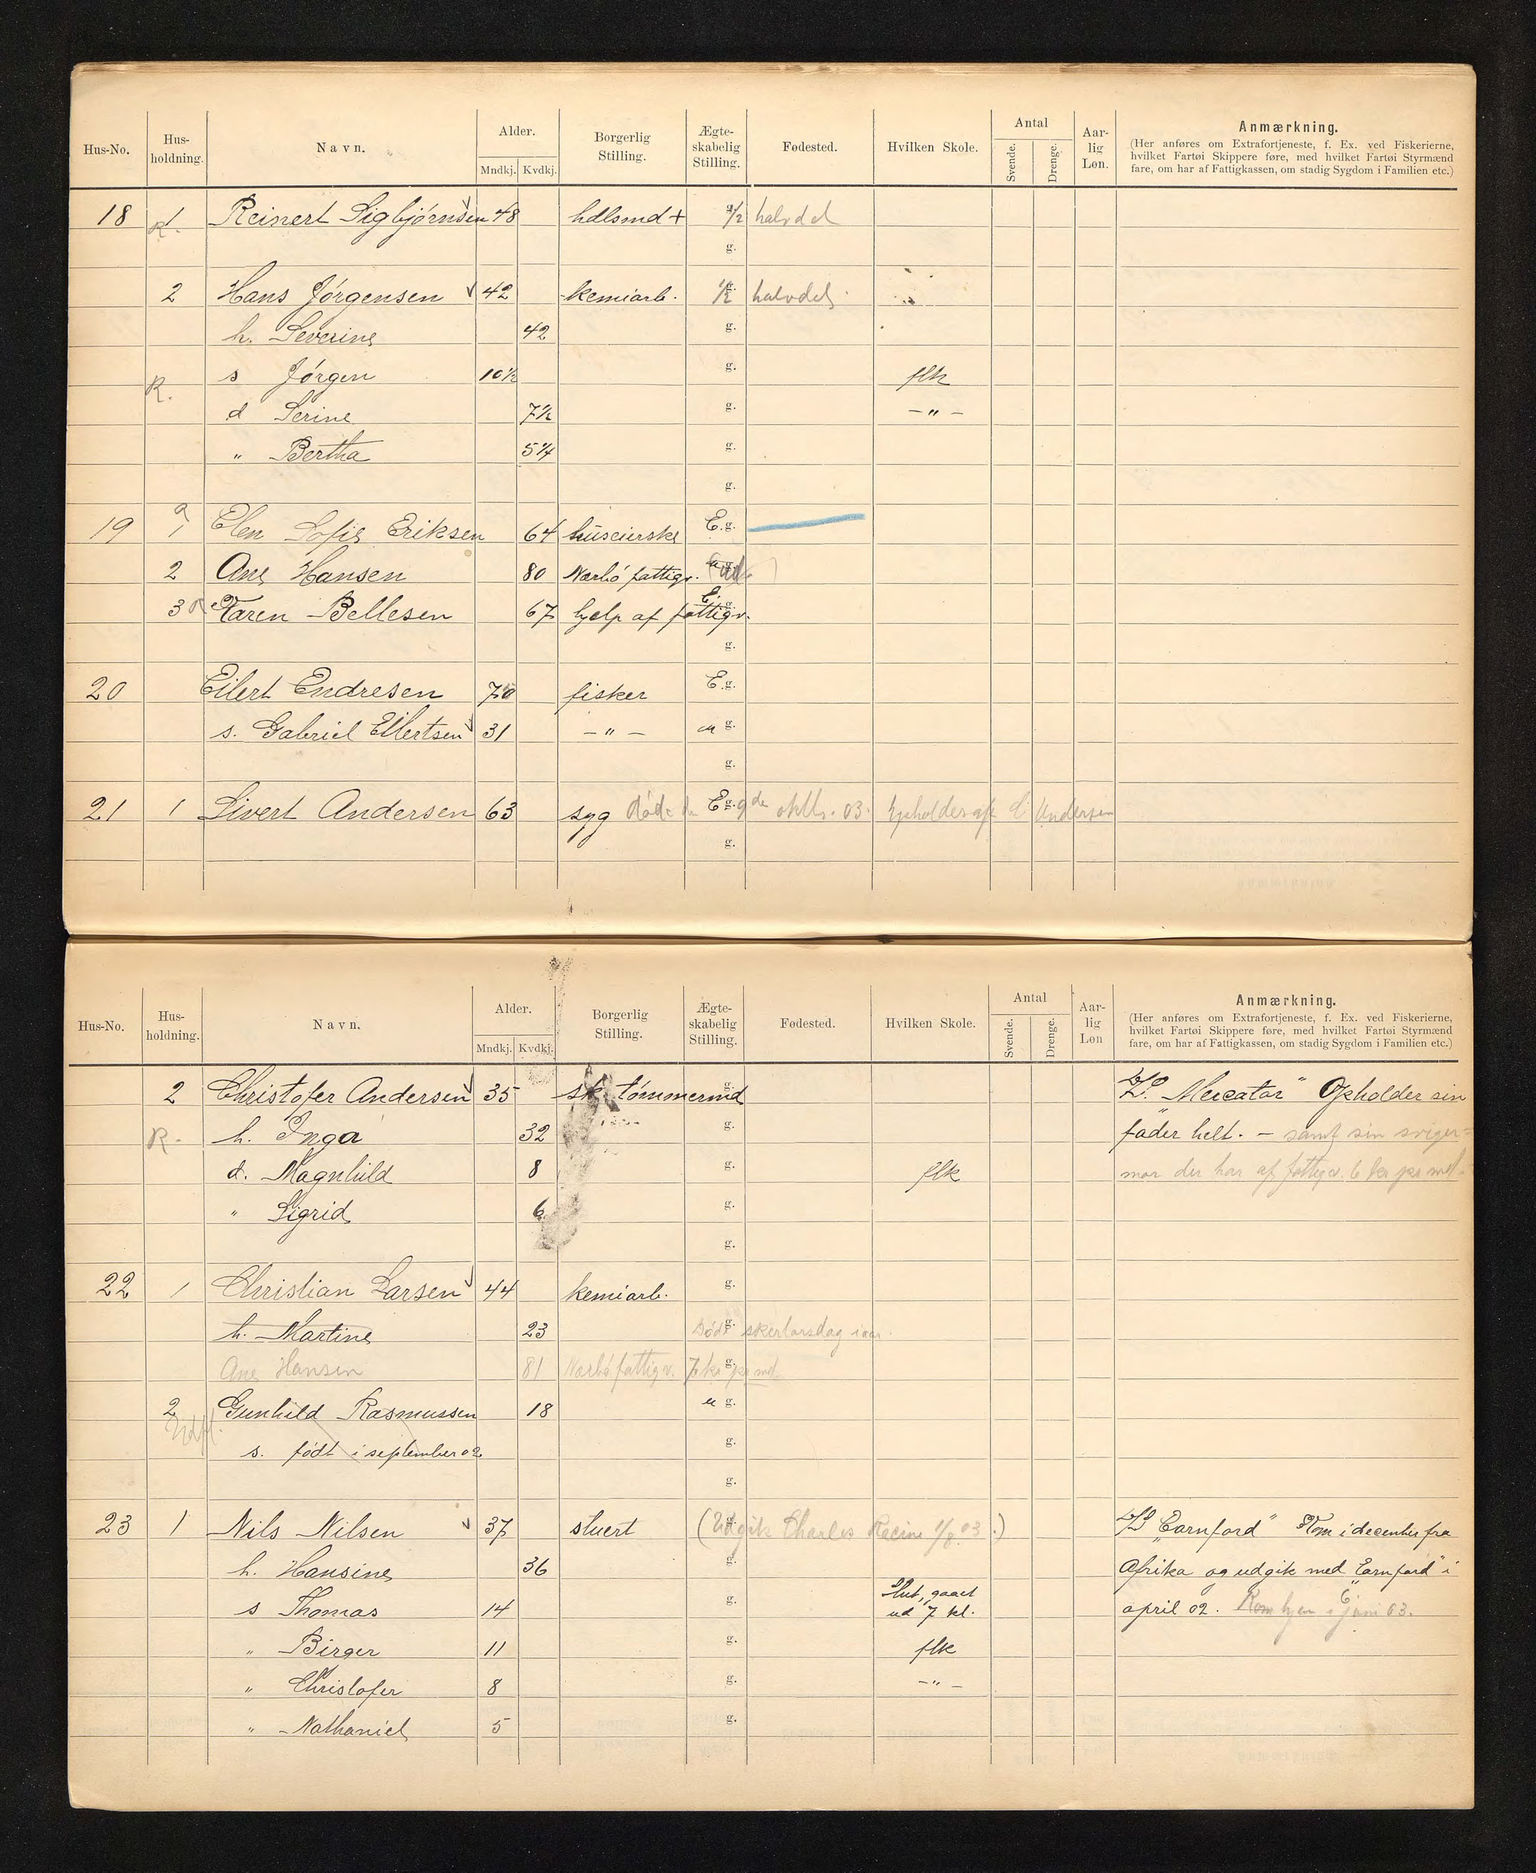 Hus-No. Hus-holdning. Navn. Alder. Mndkj. Kvdkj. Borgerlig Stilling. Ægte-skabelig Stilling. Fødested. Hvilken Skole. Antal Svende. Drenge. Aar-lig Løn. Anmærkning.
(Her anføres om Extrafortjeneste, f. Ex. ved Fiskerierne,
hvilket Fartøi Skippere føre, med hvilket Fartøi Styrmænd
fare, om har af Fattigkassen, om stadig Sygdom i Familien etc.)
18 1 R. Reinert Sigbjørnsen 48 hdlsmd + g. 1/2 halvdel
g.
2 Hans Jørgensen 42 kemiarb. g. 1/2 halvdel
h. Severine 42 g.
R. s Jørgen 10 1/2 g. flk
d Serine 7 1/2 g. — " —
" Bertha 5 1/4 g.
g.
19 1 Elen Sofie Eriksen 64 huseierske E. g.
2 Ane Hansen 80 Nærbø fattigv. g.
3 Karen Bellesen 67 hjelp af fattigv. E. g.
g.
20 Eilert Endresen 70 fisker E. g.
s. Gabriel Eilertsen 31 — " — u g.
g.
21 1 Sivert Andersen 63 syg døde den E. g. 9de oktb. 03. opholdes af C Andersen
g.
Hus-No. Hus-holdning. Navn. Alder. Mndkj. Kvdkj. Borgerlig Stilling. Ægte-skabelig Stilling. Fødested. Hvilken Skole. Antal Svende. Drenge. Aar-lig Løn Anmærkning.
(Her anføres om Extrafortjeneste, f. Ex. ved Fiskerierne,
hvilket Fartøi Skippere føre, med hvilket Fartøi Styrmænd
fare, om har af Fattigkassen, om stadig Sygdom i Familien etc.)
2 Christofer Andersen 35 sk. tømmermd g. "Mercator" Opholder sin
R. h. Inga 32 g. fader helt. — samt sin sviger-
d. Magnhild 8 g. flk mor der har af fattigv. 6 kr pr md.
" Sigrid 6 g.
g.
22 1 Christian Larsen 44 kemiarb. g.
h. Martine 23 g. Døde skertorsdag iaar.
Ane Hansen 81 Nærbø fattigv. 7 kr g. pr md.
2 Udfl. Gunhild Rasmussen 18 u g.
s. født i september 02 g.
g.
23 1 Nils Nilsen 37 stuert g. (Udgik Charles Racine 1/8 03.) "Earnford" Kom i december fra
h. Hansine 36 g. Afrika og udgik med "Earnford" i
s Thomas 14 g. Slut, gaaet ud 7 kl. april 02. Kom hjem i juni 03.
" Birger 11 g. flk
" Christofer 8 g. — " —
" Nathaniel 5 g.